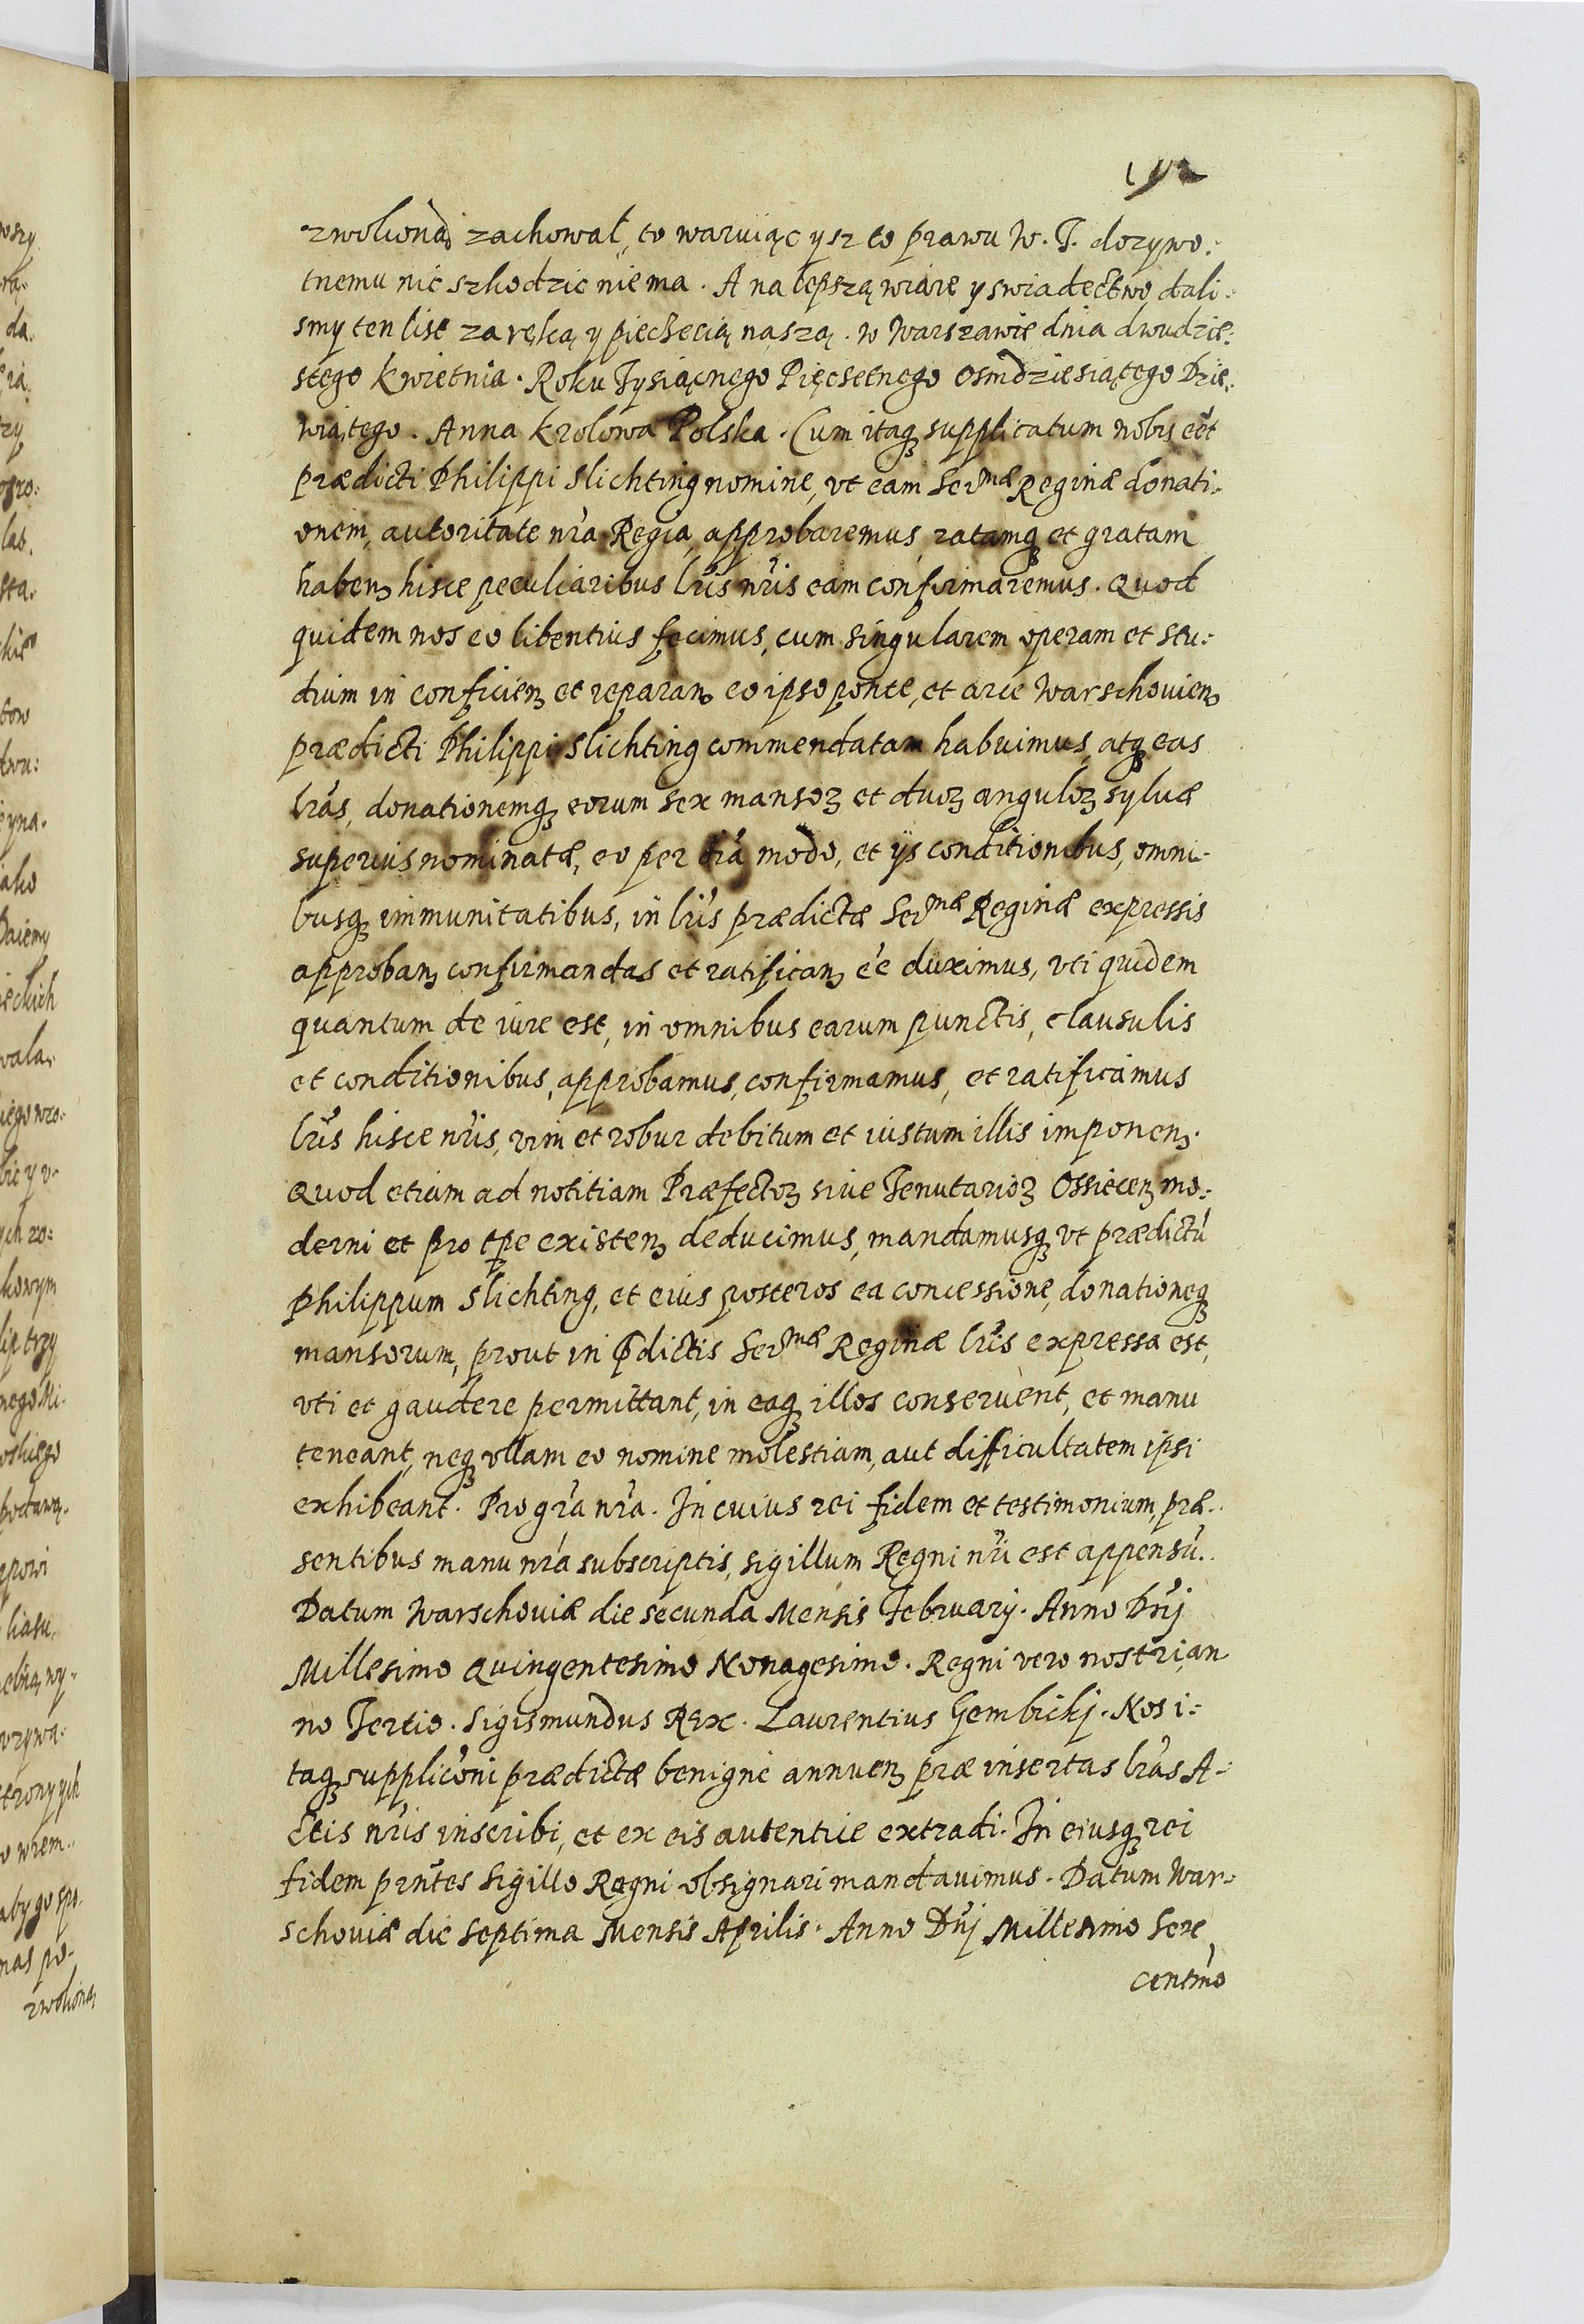 zwolioną zachował, to waruiąc ysz to prawu W. J. dozywo:
tnemu nic szkodzic niema. A na lepszą wiare y swiadectwo dali:
smy ten list za ręką y pieczecią naszą. w Warszawie dnia dwudzie:
stego kwietnia. Roku Tysiącnego Pięcsetnego osmdziesiątego Dzie:
wiątego. Anna krolowa Polska. Cum itaq supplicatum nobis eēt
prædicti Philippi Slichting nomine, vt eam Serᵐᵃᵉ Reginæ donati:
onem, autoritate nr̄a Regia, approbaremus, ratamq et gratam
haben hisce peculiaribus lr̄is nr̄is eam confirmaremus. Quod
quidem nos eo libentius fecimus, cum singularem operam et stu:
dium in conficien et reparan eo ipso ponte, et arce Warschovien
prædicti Philippi Slichting commendatam habuimus, atq eas
lr̄as, donationemq eorum sex mansoꝝ et duoꝝ anguloꝝ syluæ
superius nominatæ, eo per or̄ā modo, et ijs conditionibus, omni:
busq immunitatibus, in lr̄is prædictæ Serᵐᵃᵉ Reginæ expressis
approban confirmandas et ratifican ēe duximus, vti quidem
quantum de iure est, in omnibus earum punctis, clausulis
et conditionibus, approbamus, confirmamus, et ratificamus
lr̄is hisce nr̄is, vim et robur debitum et iustum illis imponen.
Quod etiam ad notitiam Præfectoꝝ siue Tenutarioꝝ Ossiecen mo:
derni et pro tpe existen deducimus, mandamusq vt prædictū
Philippum Slichting, et eius posteros ea concessione, donationeq
mansorum, prout in p̄dictis Serᵐᵃᵉ Reginæ lr̄is expressa est,
vti et gaudere permittant, in eaq illos conseruent, et manu
teneant, neq vllam eo nomine molestiam, aut difficultatem ipsi
exhibeant. Pro gr̄a nr̄a. In cuius rei fidem et testimonium, præ:
sentibus manu nr̄a subscriptis, sigillum Regni nr̄i est appensū.
Datum Warschoviæ die secunda Mensis February. Anno Dn̄j
Millesimo Quingentesimo Nonagesimo. Regni vero nostri, an
no Tertio. Sigismundus Rex. Laurentius Gembickj. Nos i:
taq supplicōni prædictæ benigne annuen præinsertas lr̄as A:
ctis nr̄is inscribi, et ex eis autentice extradi. In eiusq rei
fidem prn̄tes Sigillo Regni obsignari mandauimus. Datum War:
schoviæ die Septima Mensis Aprilis. Anno Dn̄j Millesimo Sexc
centmo